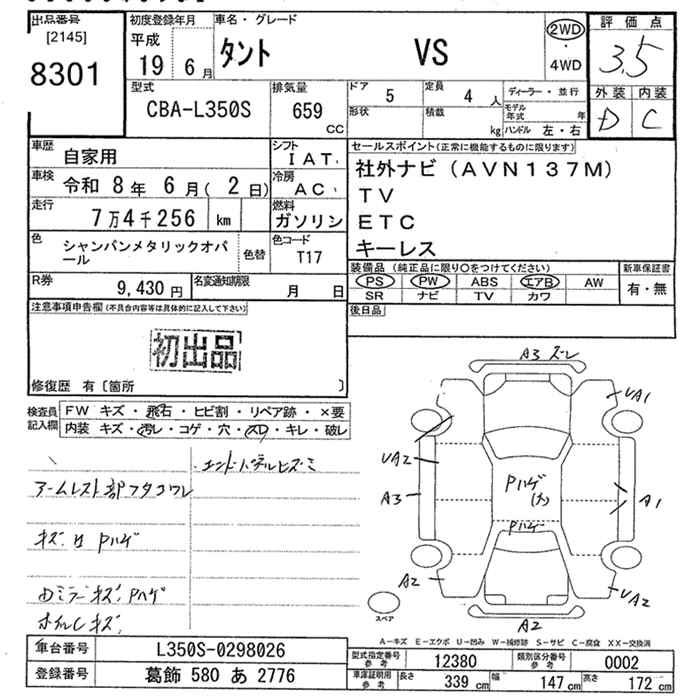 出品番号
[2145]
8301
初度登録年月
平成
19 6月
車名・グレード
タント VS
2WD
・
4WD
評価点
3.5
外装 内装
D C
型式
CBA-L350S
排気量
659
CC
ドア
5
定員
4 人
形状
積載
kg
ディーラー・並行
モデル年式 年
ハンドル 左・右
車歴
自家用
シフト
IAT
車検
令和 8年 6月( 2日)
冷房
AC
走行
7万4千256 km
燃料
ガソリン
色
シャンパンメタリックオパール
色替
色コード
T17
R券
9,430 円
名変通知期限
月 日
セールスポイント(正常に機能するものに限ります)
社外ナビ(AVN137M)
TV
ETC
キーレス
装備品 (純正品に限り○をつけてください)
PS PW ABS エアB AW
SR ナビ TV カワ
新車保証書
有・無
後日品
注意事項申告欄(不具合内容等は具体的に記入して下さい)
初出品
修復歴 有〔箇所 〕
検査員記入欄
FW キズ・飛石・ヒビ割・リペア跡・×要
内装 キズ・汚レ・コゲ・穴・スレ・キレ・破レ
アームレスト部フタコワレ
キズ サ Pハゲ
Dミラーキズ、Pハゲ
ホイルCキズ
エンドパネルヒズミ
A3 ズレ
UA1
UA2
A3
Pハゲ
(大)
A1
Pハゲ
A2
UA2
A2
スペア
A-キズ E-エクボ U-凹み W-補修跡 S-サビ C-腐食 XX-交換済
車台番号
L350S-0298026
登録番号
葛飾 580 あ 2776
型式指定番号
参考
12380
類別区分番号
参考
0002
車庫証明用
参考
長さ
339 cm
幅
147 cm
高さ
172 cm